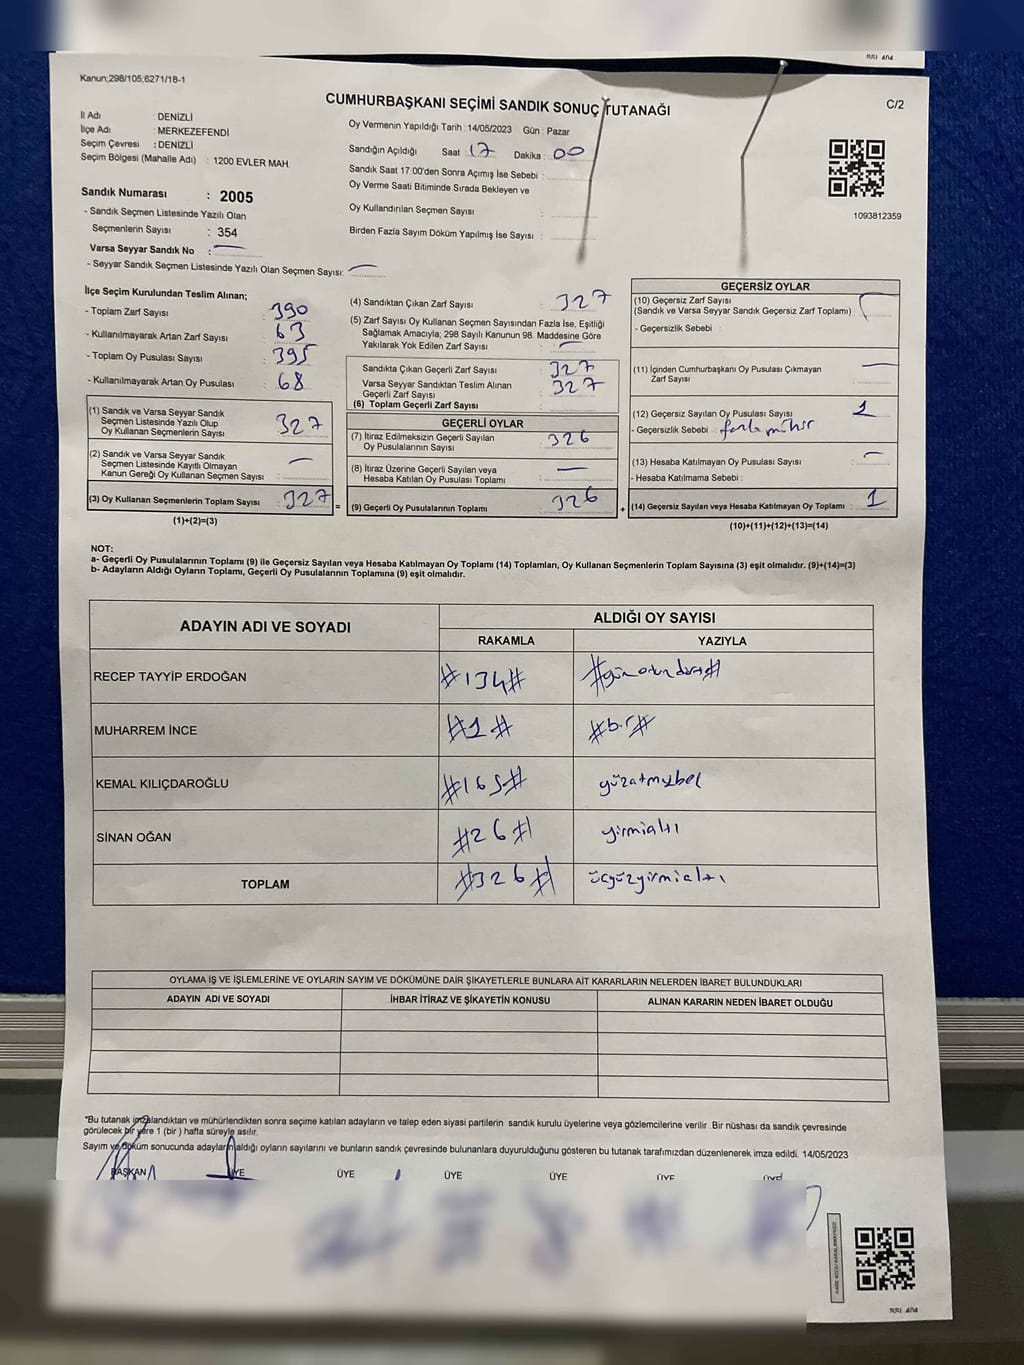 RRI 404
Kanun;298/105,6271/18-1
CUMHURBAŞKANI SEÇİMİ SANDIK SONUÇ TUTANAĞI
C/2
İl Adı : DENİZLİ
İlçe Adı : MERKEZEFENDİ
Seçim Çevresi : DENİZLİ
Seçim Bölgesi (Mahalle Adı) : 1200 EVLER MAH.
Sandık Numarası : 2005
- Sandık Seçmen Listesinde Yazılı Olan
Seçmenlerin Sayısı : 354
Varsa Seyyar Sandık No :
- Seyyar Sandık Seçmen Listesinde Yazılı Olan Seçmen Sayısı:
Oy Vermenin Yapıldığı Tarih : 14/05/2023 Gün : Pazar
Sandığın Açıldığı Saat 17 Dakika : 00
Sandık Saat 17:00'den Sonra Açımış İse Sebebi :
Oy Verme Saati Bitiminde Sırada Bekleyen ve
Oy Kullandırılan Seçmen Sayısı :
Birden Fazla Sayım Döküm Yapılmış İse Sayısı :
1093812359
İlçe Seçim Kurulundan Teslim Alınan;
- Toplam Zarf Sayısı : 390
- Kullanılmayarak Artan Zarf Sayısı : 63
- Toplam Oy Pusulası Sayısı : 395
- Kullanılmayarak Artan Oy Pusulası : 68
(1) Sandık ve Varsa Seyyar Sandık
Seçmen Listesinde Yazılı Olup
Oy Kullanan Seçmenlerin Sayısı : 327
(2) Sandık ve Varsa Seyyar Sandık
Seçmen Listesinde Kayıtlı Olmayan
Kanun Gereği Oy Kullanan Seçmen Sayısı :
(3) Oy Kullanan Seçmenlerin Toplam Sayısı : 327
(1)+(2)=(3)
(4) Sandıktan Çıkan Zarf Sayısı : 327
(5) Zarf Sayısı Oy Kullanan Seçmen Sayısından Fazla İse, Eşitliği
Sağlamak Amacıyla; 298 Sayılı Kanunun 98. Maddesine Göre
Yakılarak Yok Edilen Zarf Sayısı :
Sandıkta Çıkan Geçerli Zarf Sayısı : 327
Varsa Seyyar Sandıktan Teslim Alınan
Geçerli Zarf Sayısı : 327
(6) Toplam Geçerli Zarf Sayısı :
GEÇERLİ OYLAR
(7) İtiraz Edilmeksizin Geçerli Sayılan
Oy Pusulalarının Sayısı : 326
(8) İtiraz Üzerine Geçerli Sayılan veya
Hesaba Katılan Oy Pusulası Toplamı :
= (9) Geçerli Oy Pusulalarının Toplamı : 326
GEÇERSİZ OYLAR
(10) Geçersiz Zarf Sayısı
(Sandık ve Varsa Seyyar Sandık Geçersiz Zarf Toplamı) :
- Geçersizlik Sebebi :
(11) İçinden Cumhurbaşkanı Oy Pusulası Çıkmayan
Zarf Sayısı :
(12) Geçersiz Sayılan Oy Pusulası Sayısı : 1
- Geçersizlik Sebebi : fazla mühür
(13) Hesaba Katılmayan Oy Pusulası Sayısı :
- Hesaba Katılmama Sebebi :
+ (14) Geçersiz Sayılan veya Hesaba Katılmayan Oy Toplamı : 1
(10)+(11)+(12)+(13)=(14)
NOT:
a- Geçerli Oy Pusulalarının Toplamı (9) ile Geçersiz Sayılan veya Hesaba Katılmayan Oy Toplamı (14) Toplamları, Oy Kullanan Seçmenlerin Toplam Sayısına (3) eşit olmalıdır. (9)+(14)=(3)
b- Adayların Aldığı Oyların Toplamı, Geçerli Oy Pusulalarının Toplamına (9) eşit olmalıdır.
ADAYIN ADI VE SOYADI
ALDIĞI OY SAYISI
RAKAMLA YAZIYLA
RECEP TAYYİP ERDOĞAN #134#
MUHARREM İNCE #1# #bir#
KEMAL KILIÇDAROĞLU #165# yüzatmışbeş
SİNAN OĞAN #26# yirmialtı
TOPLAM #326# üçyüzyirmialtı
OYLAMA İŞ VE İŞLEMLERİNE VE OYLARIN SAYIM VE DÖKÜMÜNE DAİR ŞİKAYETLERLE BUNLARA AİT KARARLARIN NELERDEN İBARET BULUNDUKLARI
ADAYIN ADI VE SOYADI İHBAR İTİRAZ VE ŞİKAYETİN KONUSU ALINAN KARARIN NEDEN İBARET OLDUĞU
*Bu tutanak imzalandıktan ve mühürlendikten sonra seçime katılan adayların ve talep eden siyasi partilerin sandık kurulu üyelerine veya gözlemcilerine verilir. Bir nüshası da sandık çevresinde
görülecek bir yere 1 (bir ) hafta süreyle asılır.
Sayım ve döküm sonucunda adayların aldığı oyların sayılarını ve bunların sandık çevresinde bulunanlara duyurulduğunu gösteren bu tutanak tarafımızdan düzenlenerek imza edildi. 14/05/2023
BAŞKAN ÜYE ÜYE ÜYE ÜYE ÜYE ÜYE
RRI 404